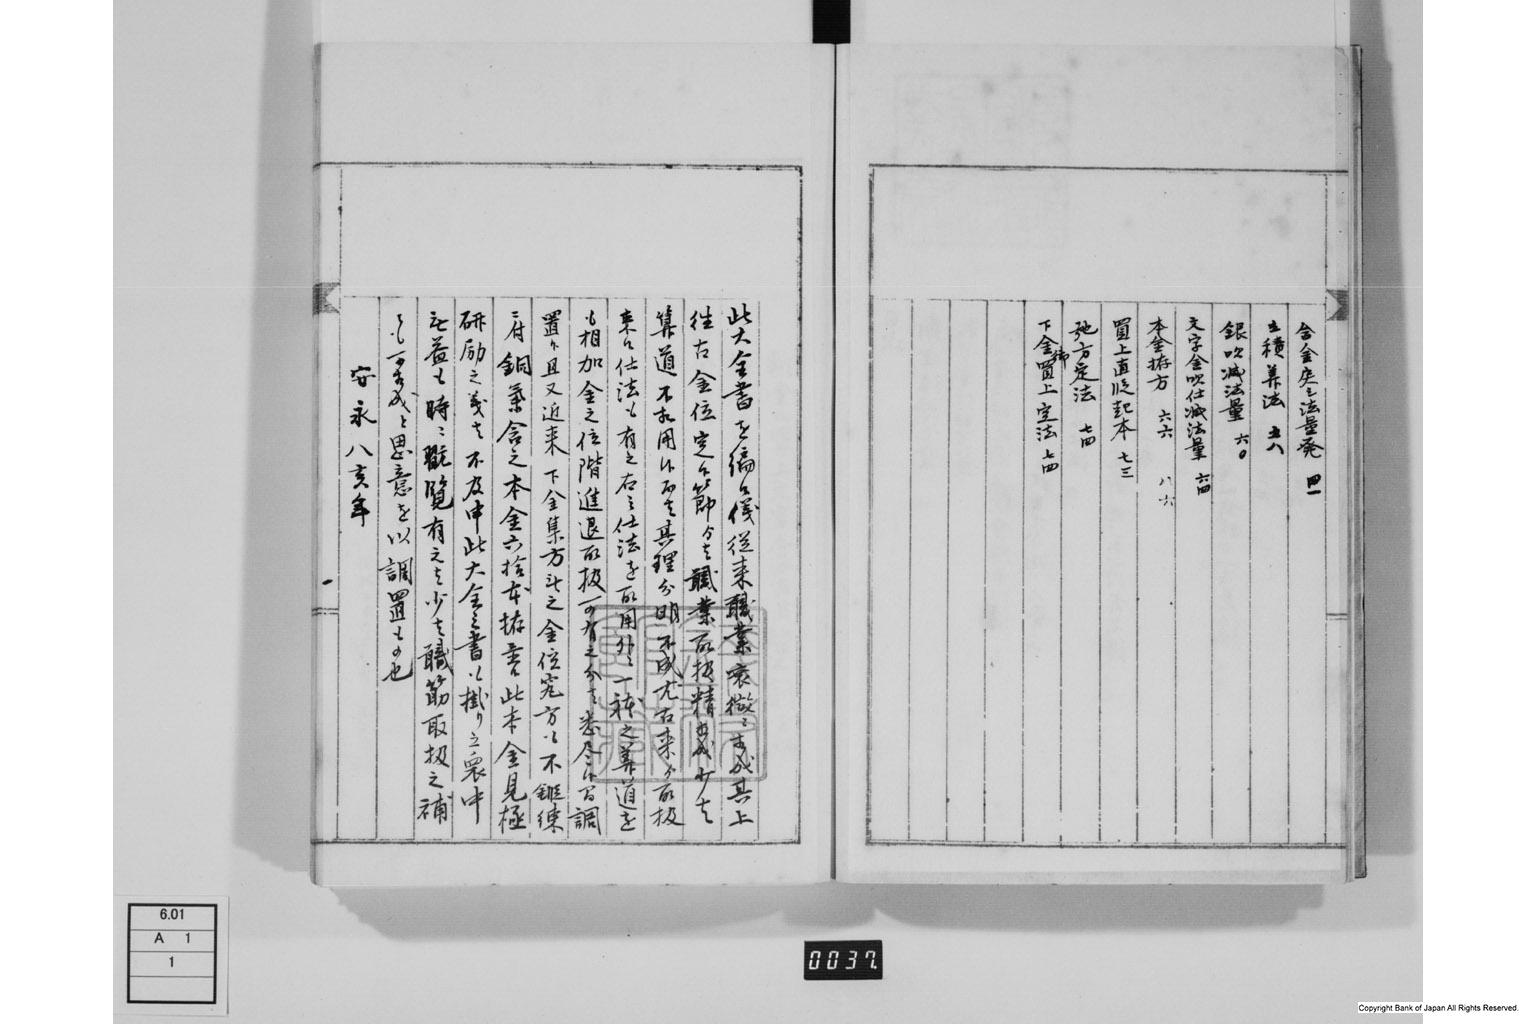 合金炙之法量発 四一
立積算法 五八
銀吹減法量 六〇
文字金吹仕減法量 六四
本金拵方 六六 八六
買上直段起本 七三
弛方定法 七四
下金買上定法 七四
此大全書を編候儀従来職業衰微ニ其上
往古金位定候節分者職業取扱精少者
算道不相用候而者其理分明不成尤古来分取扱
来候仕法も有之右之仕法を取用外ニ一種之算道を
も相加金之位階進退取扱可有之分者悉尽候間調
置候且又近来下金集方斗之金位究方も不鍛練
ニ付銅気含之本金六拾本拵置此本金見極
研励之義者不及申此大全之書も掛り之衆中
無益も時々觀覧有之者少者職筋取扱之補
とも可成と思意を以調置もの也
安永八亥年
一
6.01
A 1
1
0037.
Copyright Bank of Japan All Rights Reserved.